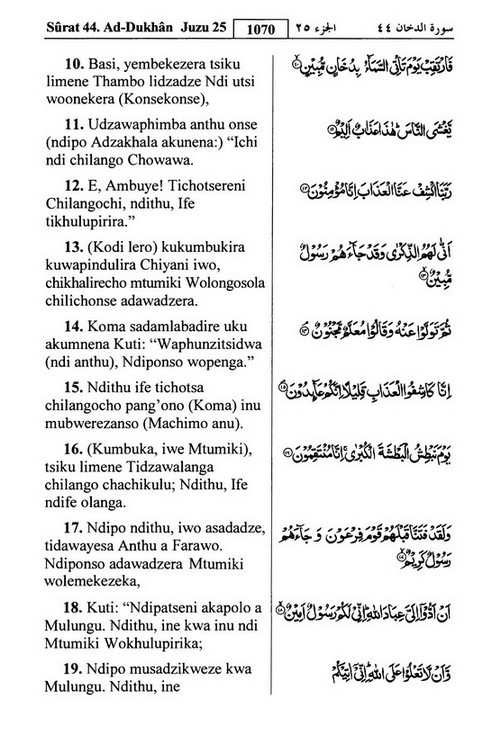 Sûrat 44. Ad-Dukhân Juzu 25 1070 الجزء ٢٥ سورة الدخان ٤٤
10. Basi, yembekezera tsiku
limene Thambo lidzadze Ndi utsi
woonekera (Konsekonse),
فَارْتَقِبْ يَوْمَ تَأْتِي السَّمَاءُ بِدُخَانٍ مُّبِينٍ ⑩
11. Udzawaphimba anthu onse
(ndipo Adzakhala akunena:) “Ichi
ndi chilango Chowawa.
يَغْشَى النَّاسَ هَٰذَا عَذَابٌ أَلِيمٌ ⑪
12. E, Ambuye! Tichotsereni
Chilangochi, ndithu, Ife
tikhulupirira.”
رَبَّنَا اكْشِفْ عَنَّا الْعَذَابَ إِنَّا مُؤْمِنُونَ ⑫
13. (Kodi lero) kukumbukira
kuwapindulira Chiyani iwo,
chikhalirecho mtumiki Wolongosola
chilichonse adawadzera.
أَنَّىٰ لَهُمُ الذِّكْرَىٰ وَقَدْ جَاءَهُمْ رَسُولٌ
مُّبِينٌ ⑬
14. Koma sadamlabadire uku
akumnena Kuti: “Waphunzitsidwa
(ndi anthu), Ndiponso wopenga.”
ثُمَّ تَوَلَّوْا عَنْهُ وَقَالُوا مُعَلَّمٌ مَّجْنُونٌ ⑭
15. Ndithu ife tichotsa
chilangocho pang’ono (Koma) inu
mubwerezanso (Machimo anu).
إِنَّا كَاشِفُو الْعَذَابِ قَلِيلًا إِنَّكُمْ عَائِدُونَ ⑮
16. (Kumbuka, iwe Mtumiki),
tsiku limene Tidzawalanga
chilango chachikulu; Ndithu, Ife
ndife olanga.
يَوْمَ نَبْطِشُ الْبَطْشَةَ الْكُبْرَىٰ إِنَّا مُنتَقِمُونَ ⑯
17. Ndipo ndithu, iwo asadadze,
tidawayesa Anthu a Farawo.
Ndiponso adawadzera Mtumiki
wolemekezeka,
وَلَقَدْ فَتَنَّا قَبْلَهُمْ قَوْمَ فِرْعَوْنَ وَجَاءَهُمْ
رَسُولٌ كَرِيمٌ ⑰
18. Kuti: “Ndipatseni akapolo a
Mulungu. Ndithu, ine kwa inu ndi
Mtumiki Wokhulupirika;
أَنْ أَدُّوا إِلَيَّ عِبَادَ اللَّهِ إِنِّي لَكُمْ رَسُولٌ أَمِينٌ ⑱
19. Ndipo musadzikweze kwa
Mulungu. Ndithu, ine
وَأَن لَّا تَعْلُوا عَلَى اللَّهِ إِنِّي آتِيكُم